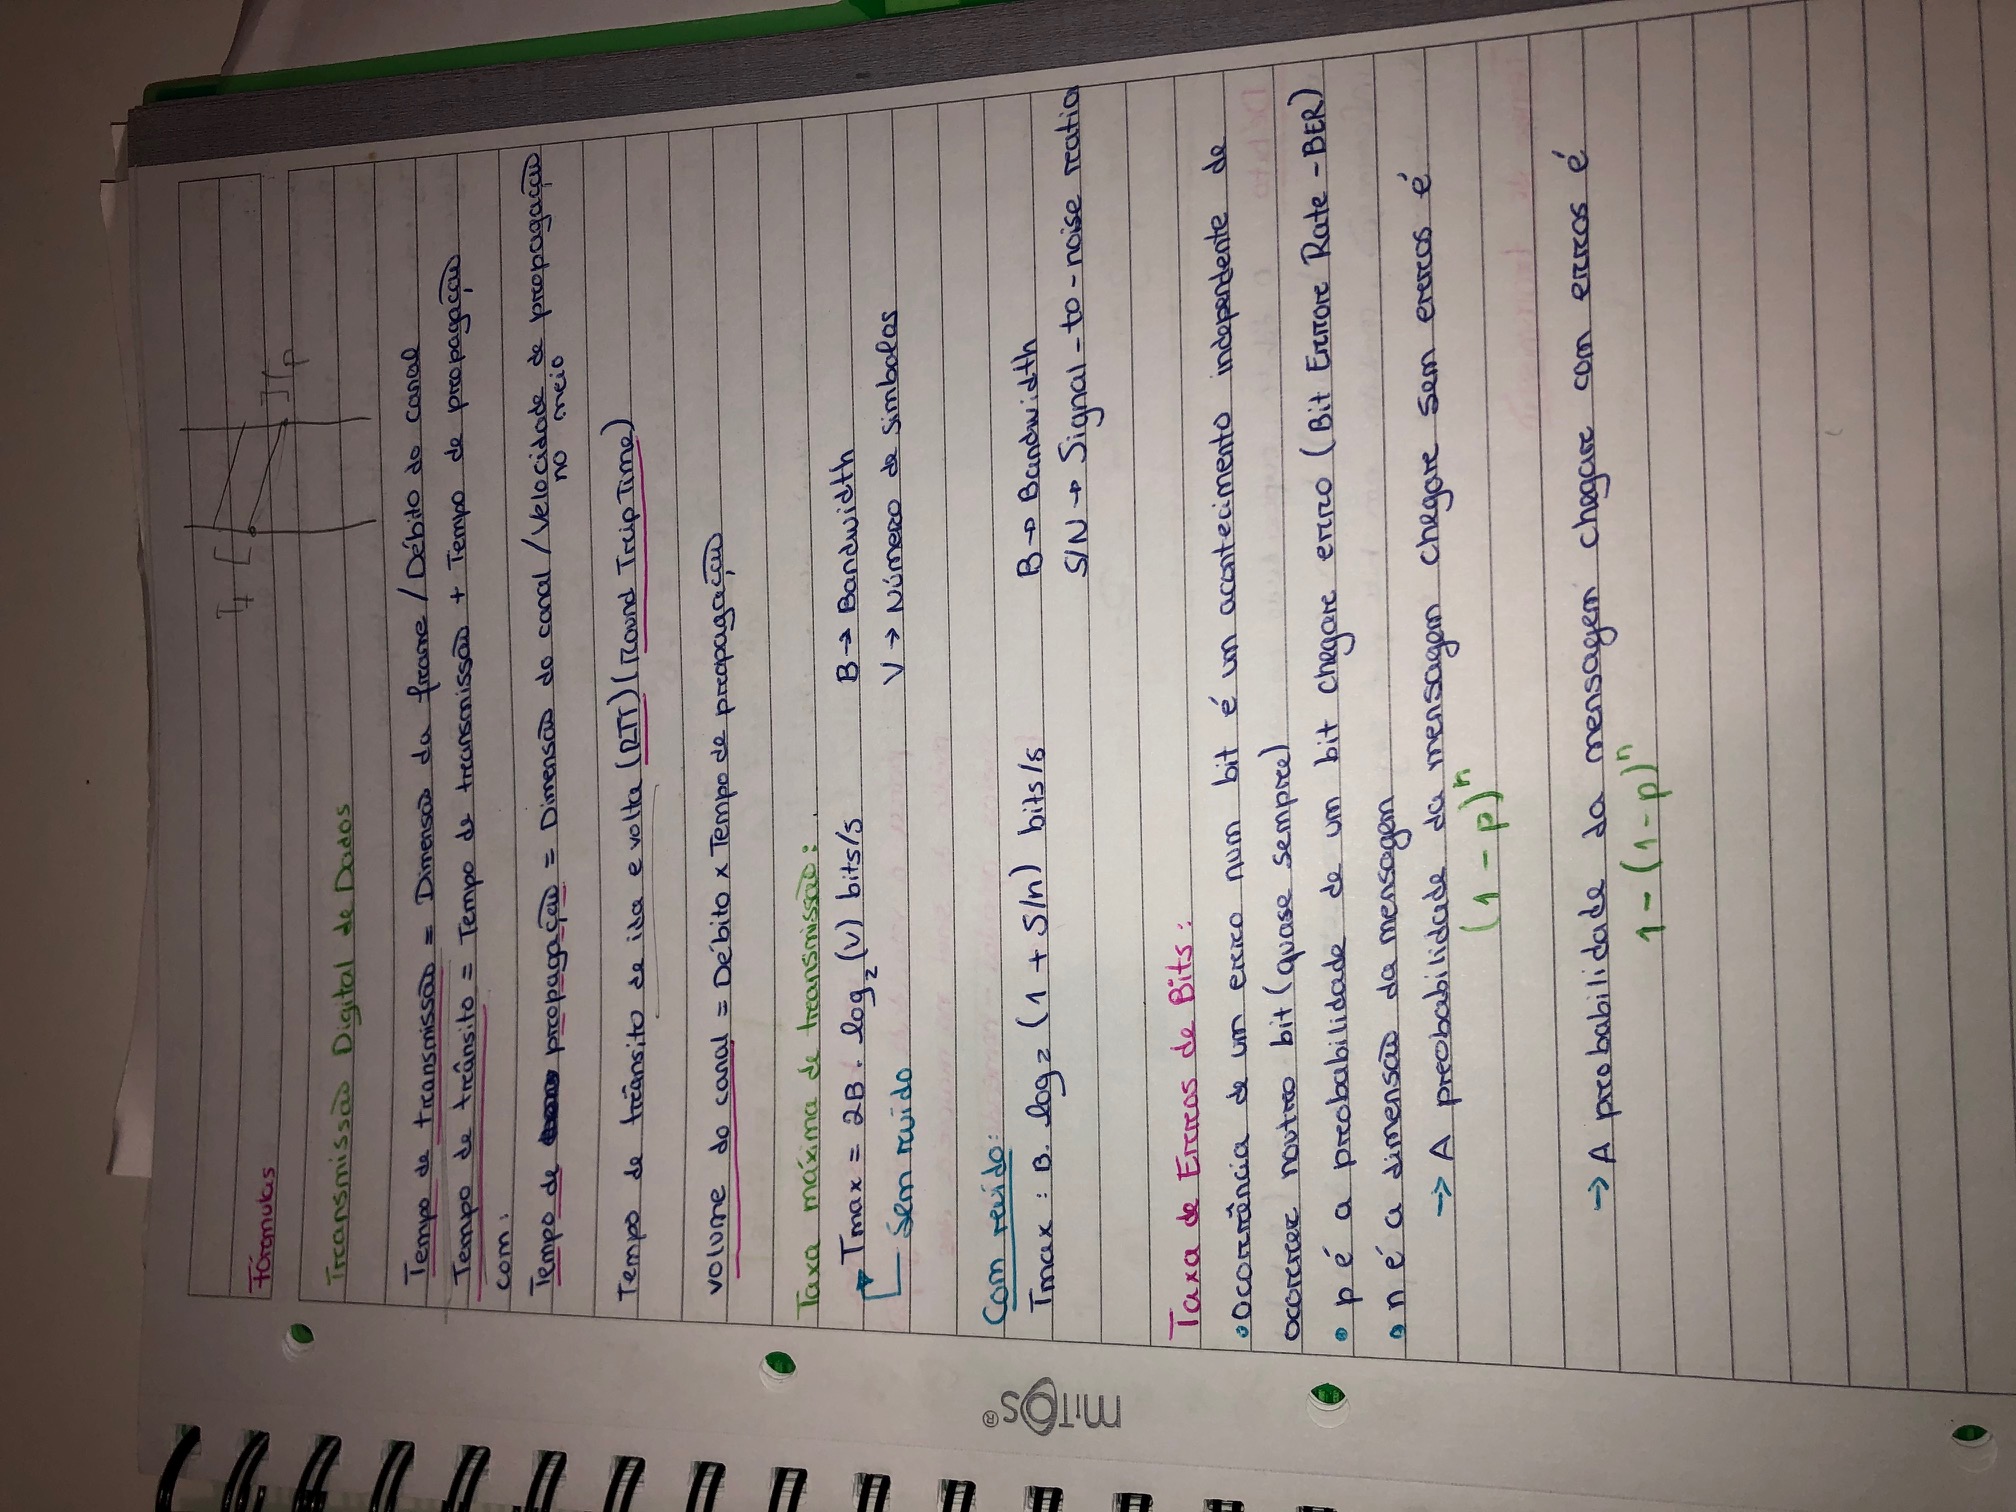 Fórmulas
Tt
Tp
Transmissão Digital de Dados
Tempo de transmissão = Dimensão da frame / Débito do canal
Tempo de trânsito = Tempo de transmissão + Tempo de propagação
com:
Tempo de propagação = Dimensão do canal / Velocidade de propagação
no meio
Tempo de trânsito de ida e volta (RTT) (Round Trip Time)
volume do canal = Débito x Tempo de propagação
Taxa máxima de transmissão:
Tmax = 2B . log₂ (V) bits/s B → Bandwidth
Sem ruído V → Número de simbolos
Com ruído:
Tmax : B. log₂ (1 + S/n) bits/s B → Bandwidth
S/N → Signal-to-noise ratio
Taxa de Erros de Bits:
• Ocorrência de um erro num bit é um acontecimento independente de
ocorrer noutro bit (quase sempre)
• p é a probabilidade de um bit chegar erro (Bit Error Rate - BER)
• n é a dimensão da mensagem
→ A probabilidade da mensagem chegar sem erros é
(1 - p)ⁿ
→ A probabilidade da mensagem chegar com erros é
1 - (1-p)ⁿ
MITOS®